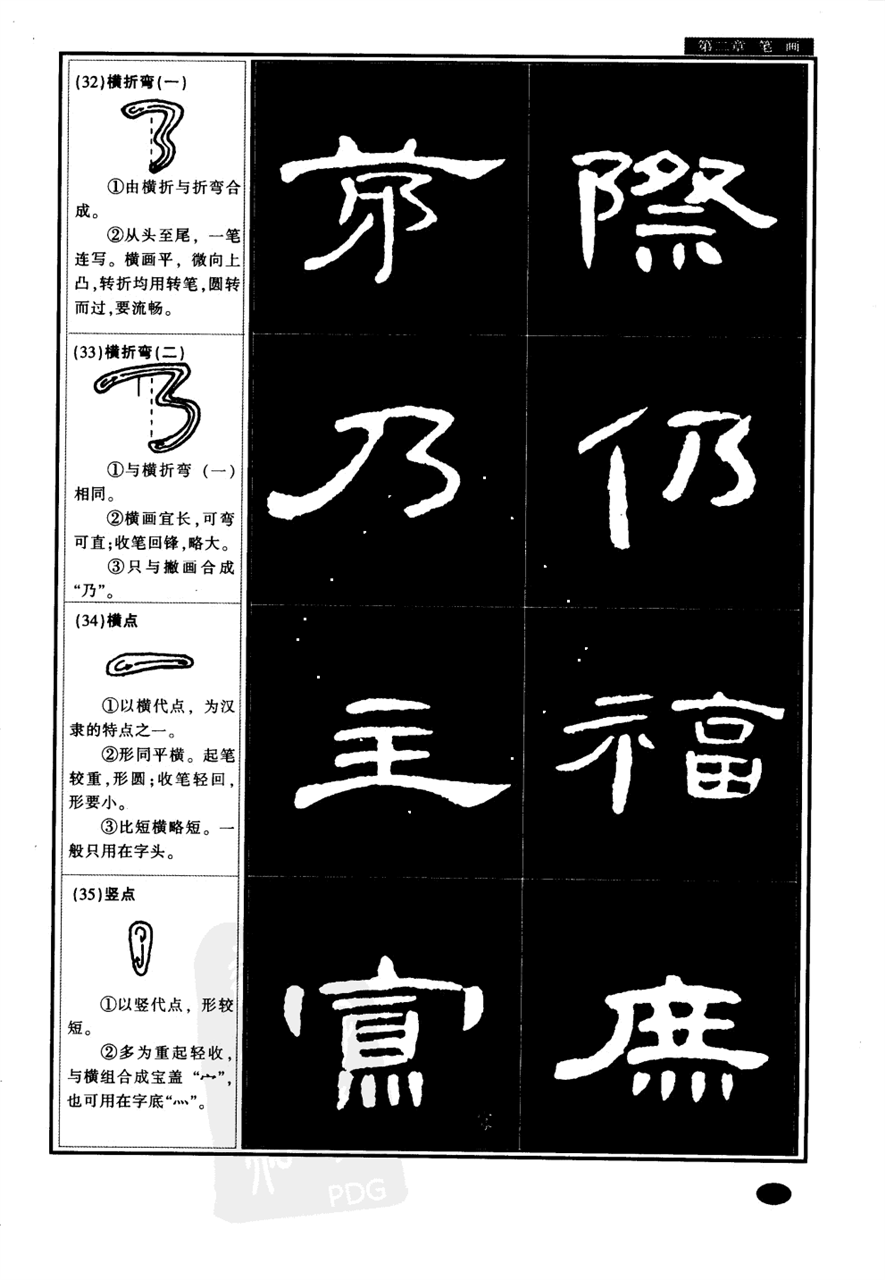 第二章 笔 画
(32)横折弯(一)
①由横折与折弯合
成。
②从头至尾，一笔
连写。横画平，微向上
凸,转折均用转笔,圆转
而过,要流畅。
際
(33)横折弯(二)
①与横折弯（一）
相同。
②横画宜长,可弯
可直;收笔回锋,略大。
③只与撇画合成
“乃”。
乃 仍
(34)横点
①以横代点，为汉
隶的特点之一。
②形同平横。起笔
较重,形圆;收笔轻回,
形要小。
③比短横略短。一
般只用在字头。
主 福
(35)竖点
①以竖代点，形较
短。
②多为重起轻收，
与横组合成宝盖“宀”，
也可用在字底“灬”。
PDG